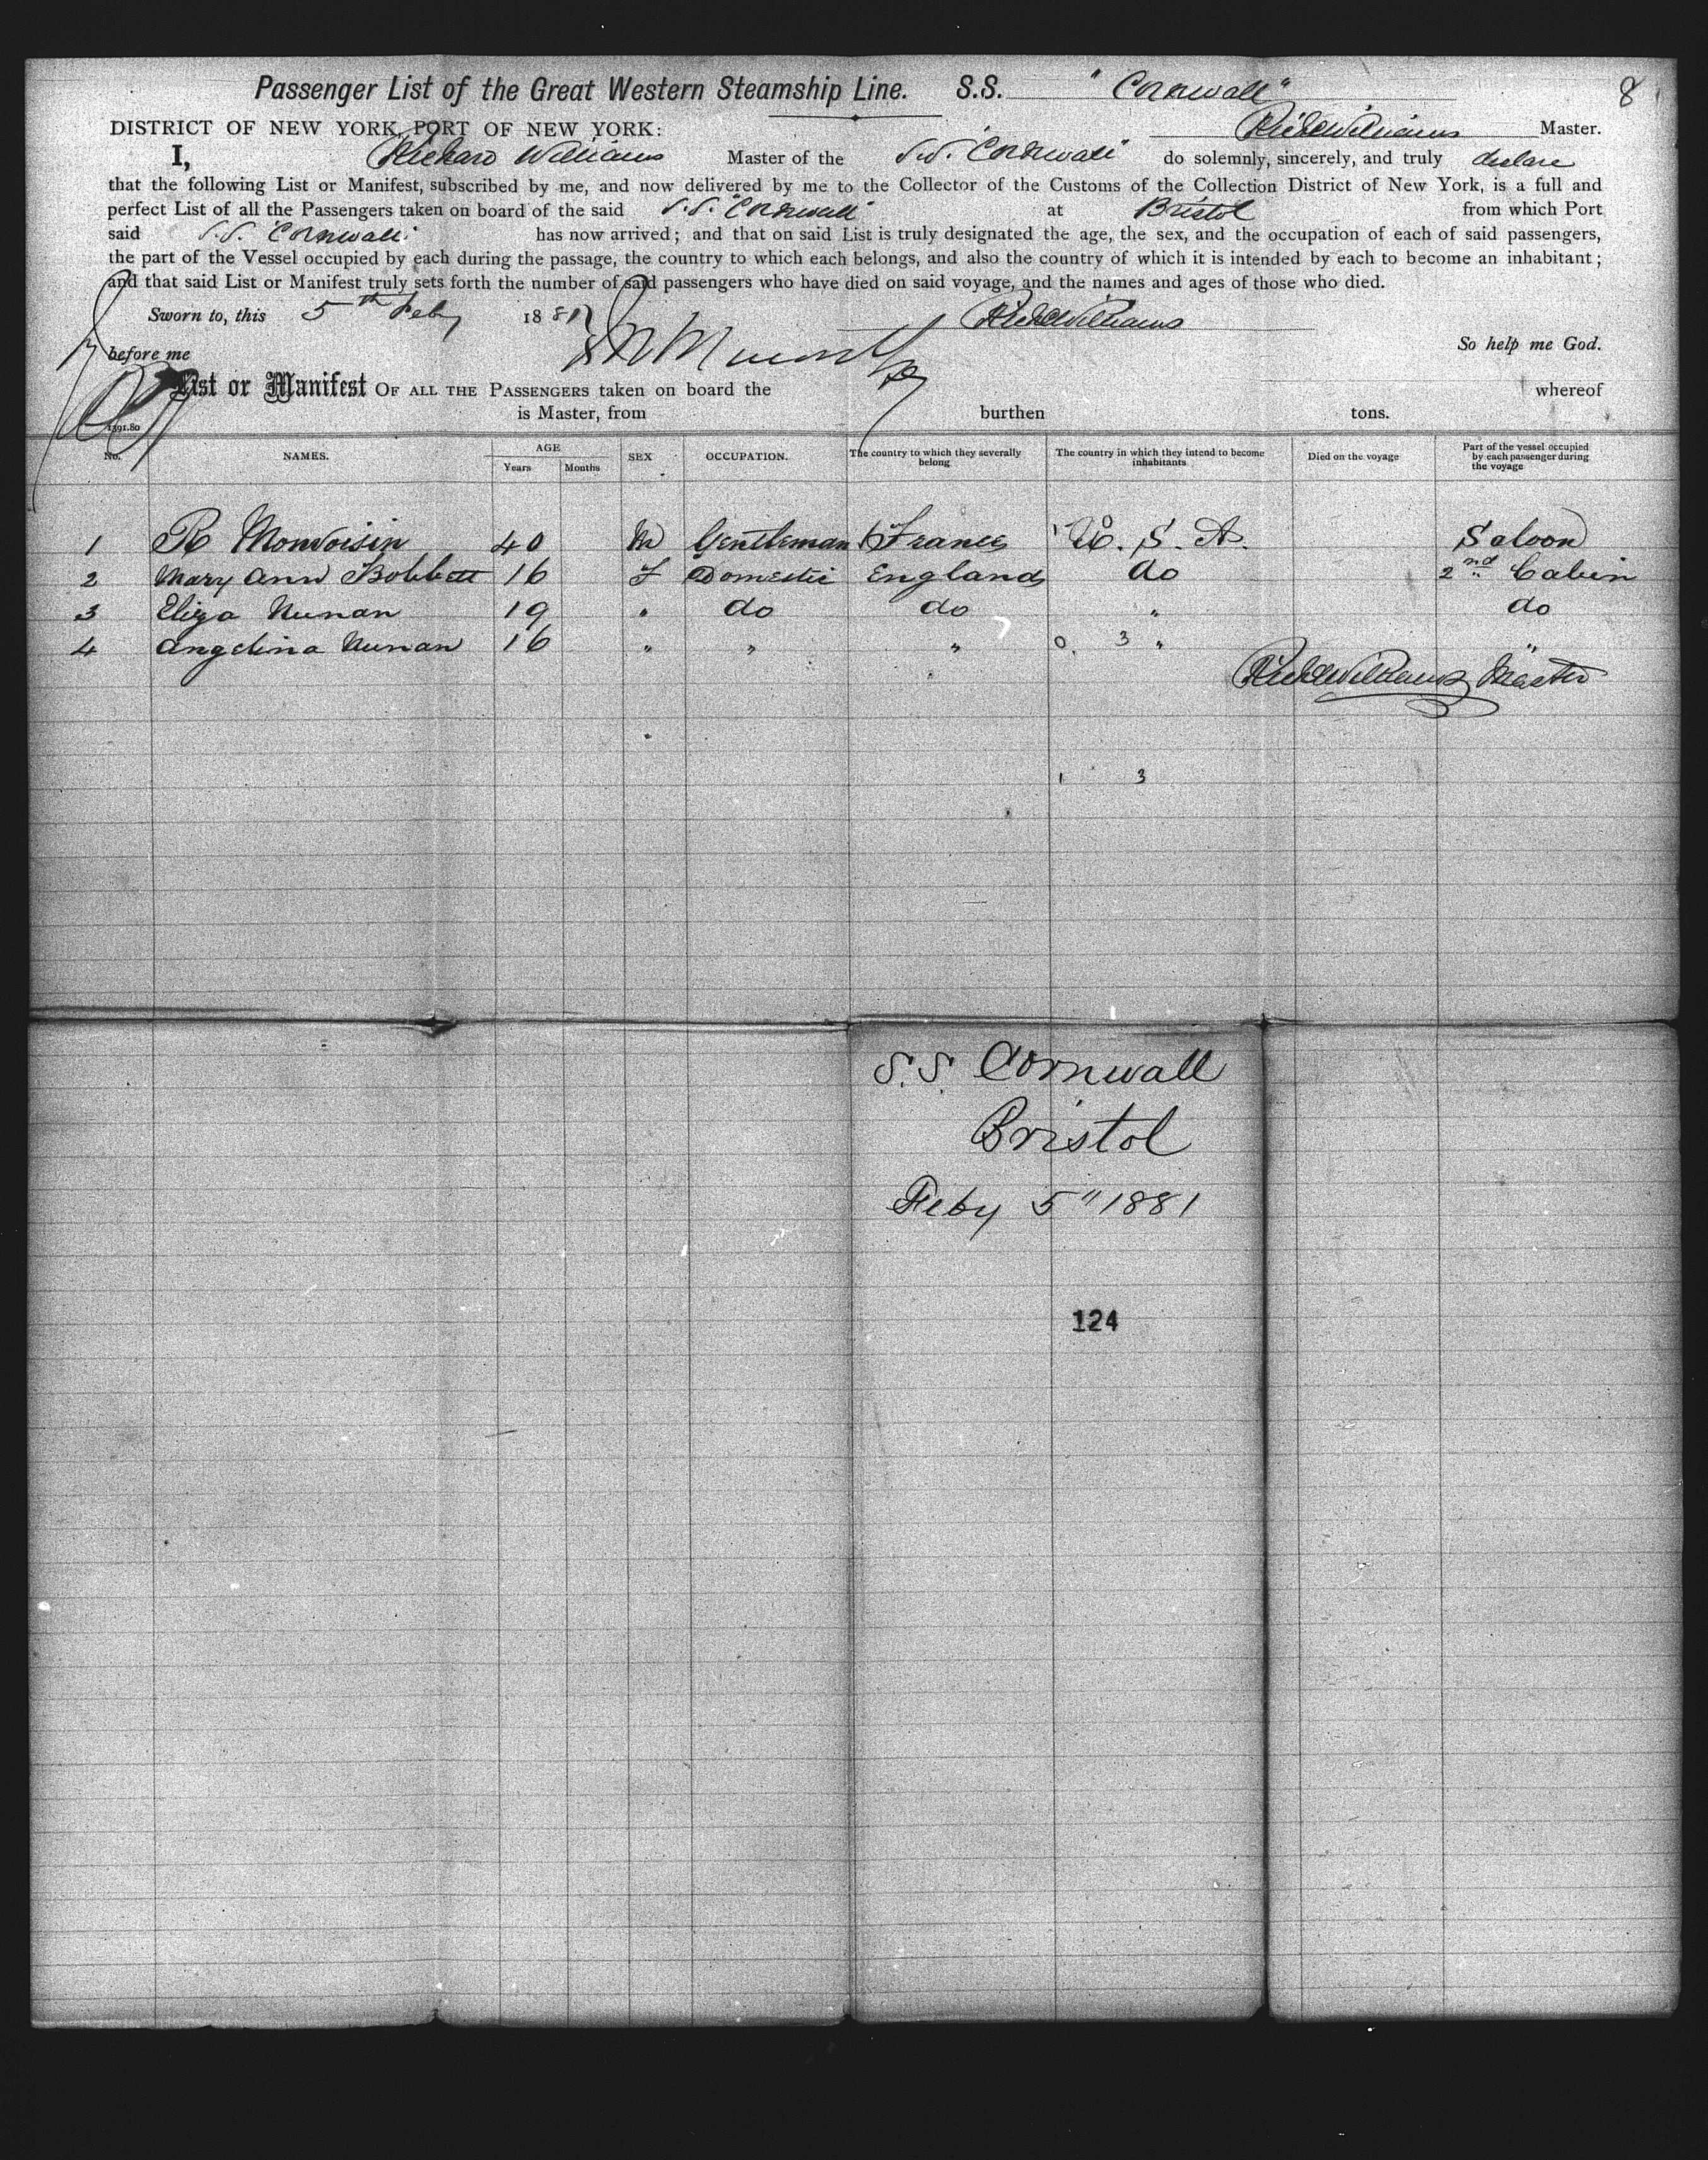 Passenger List of the Great Western Steamship Line. S.S. "Cornwall" 8
DISTRICT OF NEW YORK, PORT OF NEW YORK: Richd Williams Master.
I, Richard Williams Master of the S.S. "Cornwall" do solemnly, sincerely, and truly declare
that the following List or Manifest, subscribed by me, and now delivered by me to the Collector of the Customs of the Collection District of New York, is a full and
perfect List of all the Passengers taken on board of the said S.S. "Cornwall" at Bristol from which Port
said S.S. "Cornwall" has now arrived; and that on said List is truly designated the age, the sex, and the occupation of each of said passengers,
the part of the Vessel occupied by each during the passage, the country to which each belongs, and also the country of which it is intended by each to become an inhabitant;
and that said List or Manifest truly sets forth the number of said passengers who have died on said voyage, and the names and ages of those who died.
Sworn to, this 5th Feby 1881 Richd Williams
before me So help me God.
List or Manifest OF ALL THE PASSENGERS taken on board the whereof
is Master, from burthen tons.
1391.80
No. NAMES. AGE Years Months SEX OCCUPATION. The country to which they severally belong The country in which they intend to become inhabitants Died on the voyage Part of the vessel occupied by each passenger during the voyage
1 R Monvoisin 40 M Gentleman France U. S. A. Saloon
2 Mary Ann Bobbett 16 F Domestic England do 2nd Cabin
3 Eliza Nunan 19 " do do " do
4 Angelina Nunan 16 " " " 0 3 " "
Richd Williams Master
1 3
S.S. Cornwall
Bristol
Feby 5" 1881
124